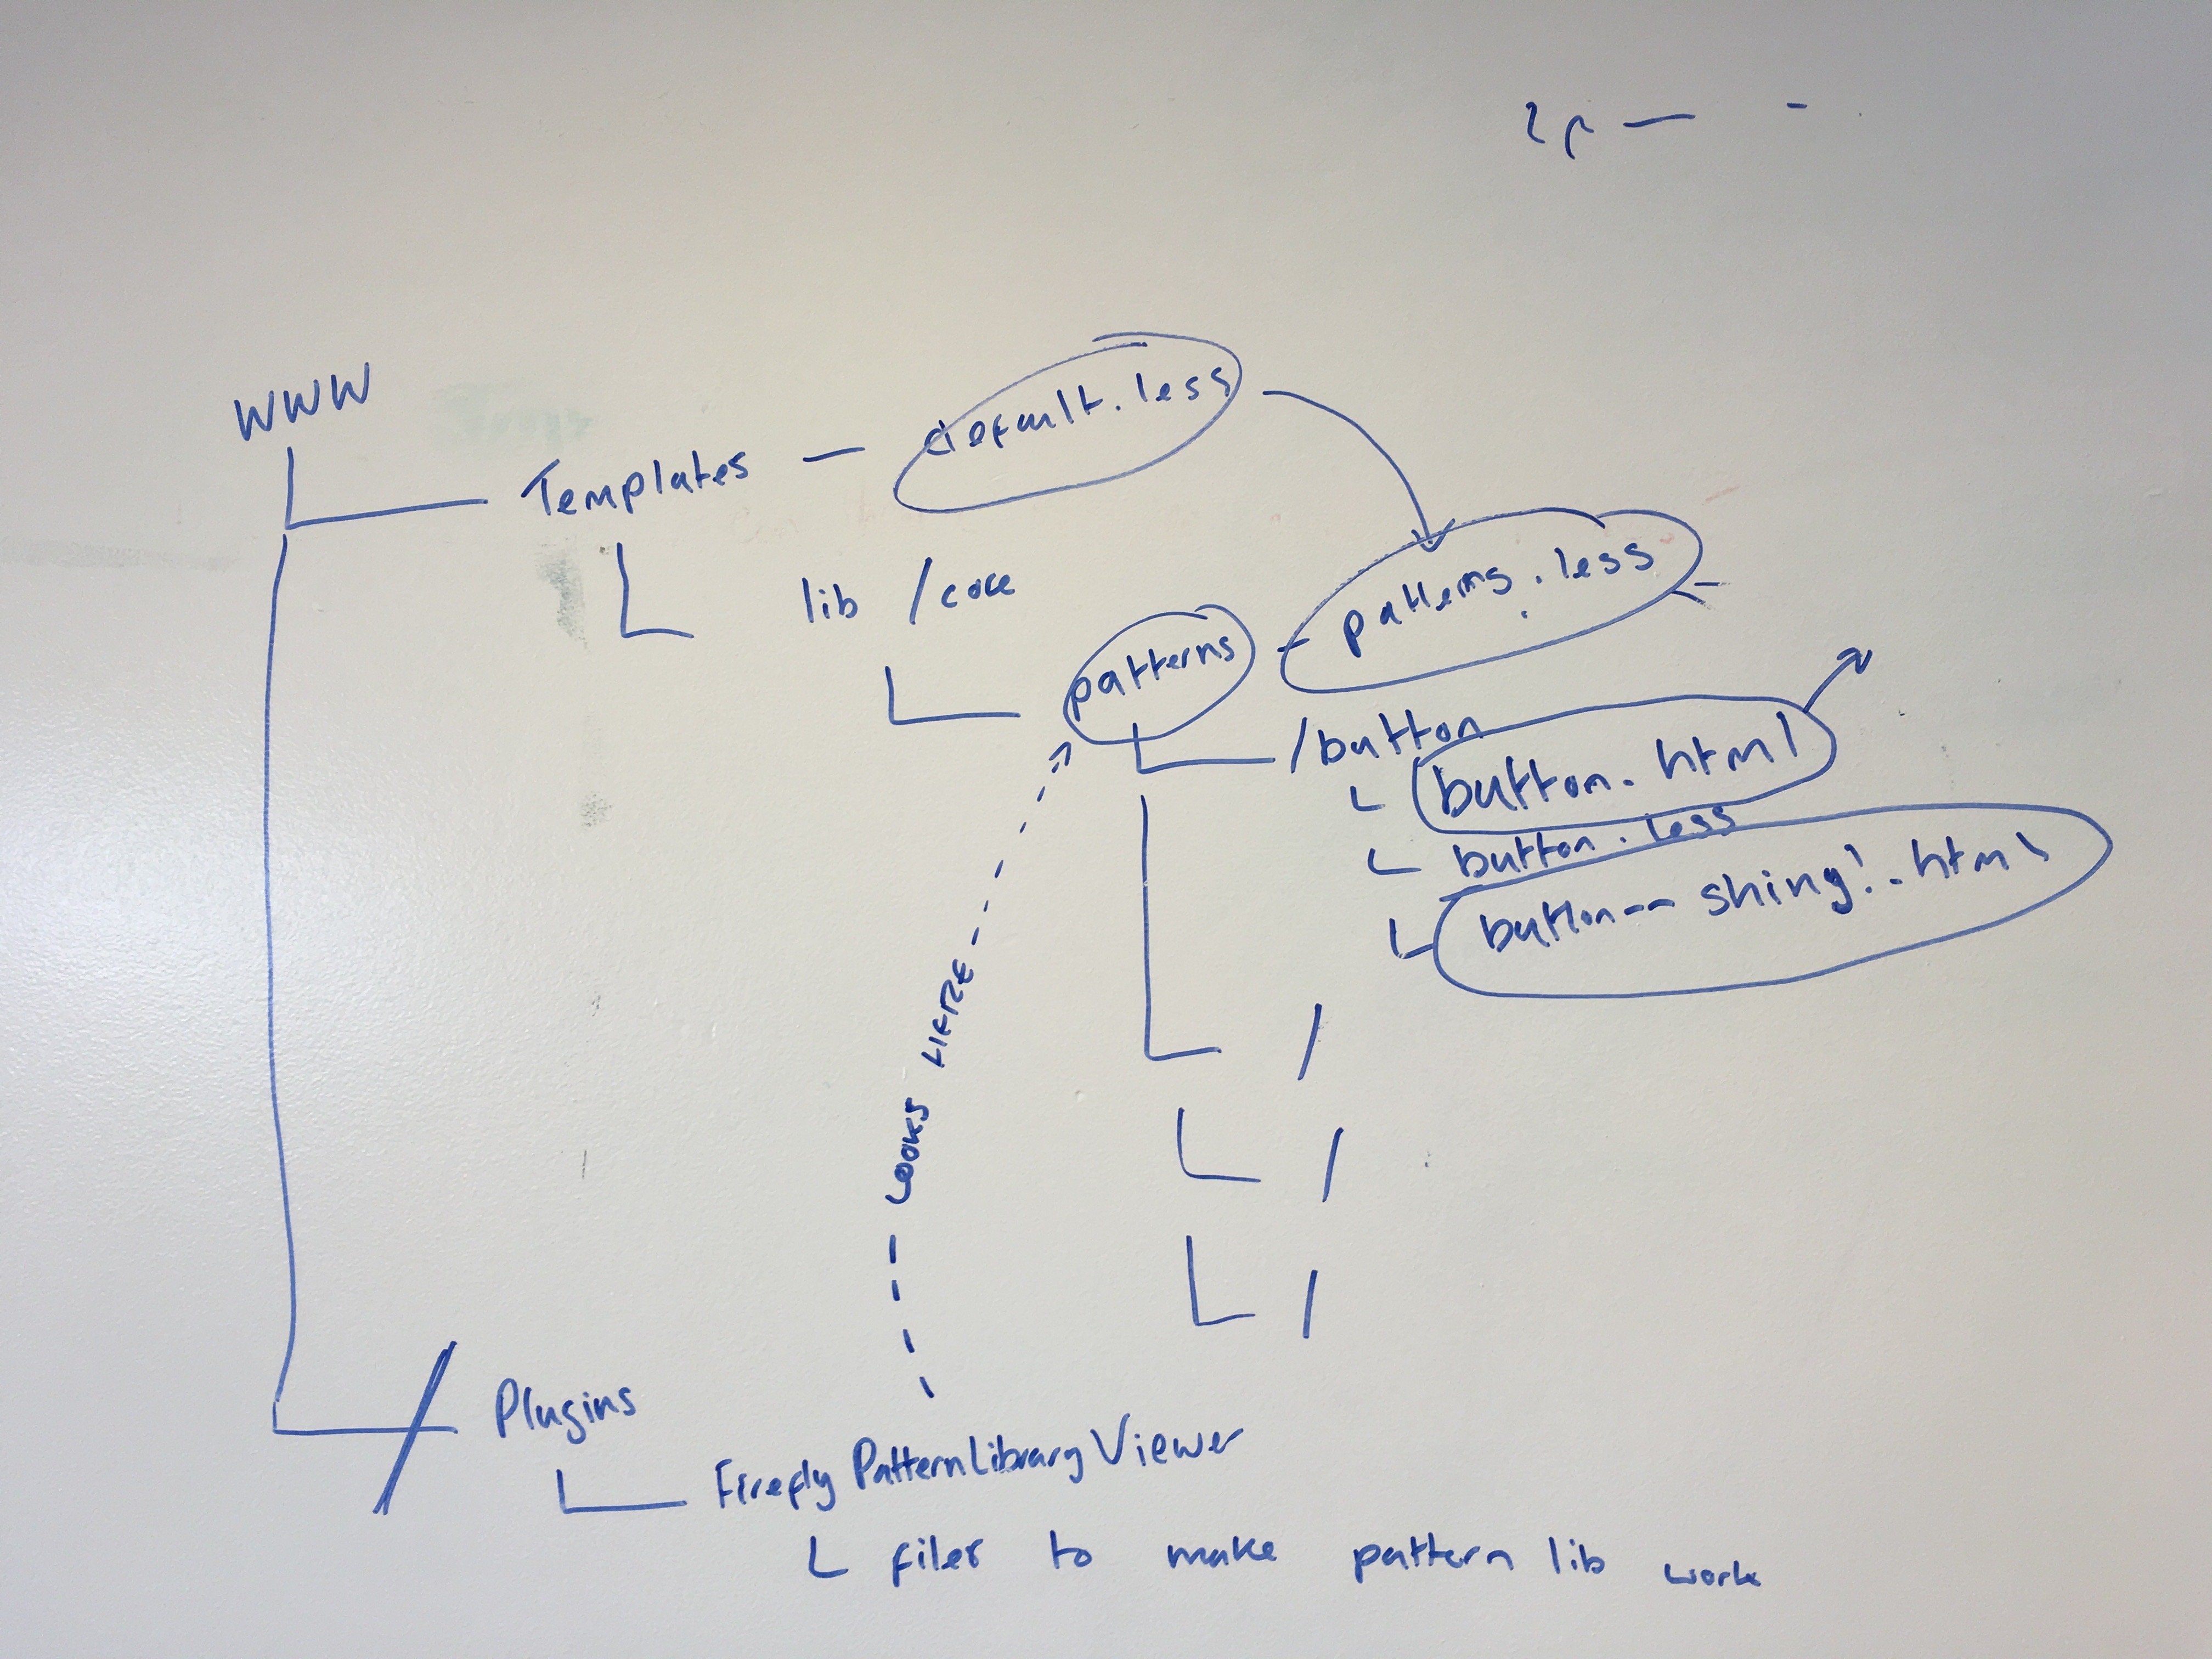 WWW
Templates — default.less
lib /core
patterns - patterns.less
/button
button.html
button.less
button--shiny!.html
/
/
/
LOOKS HERE
Plugins
Firefly PatternLibraryViewer
files to make pattern lib work